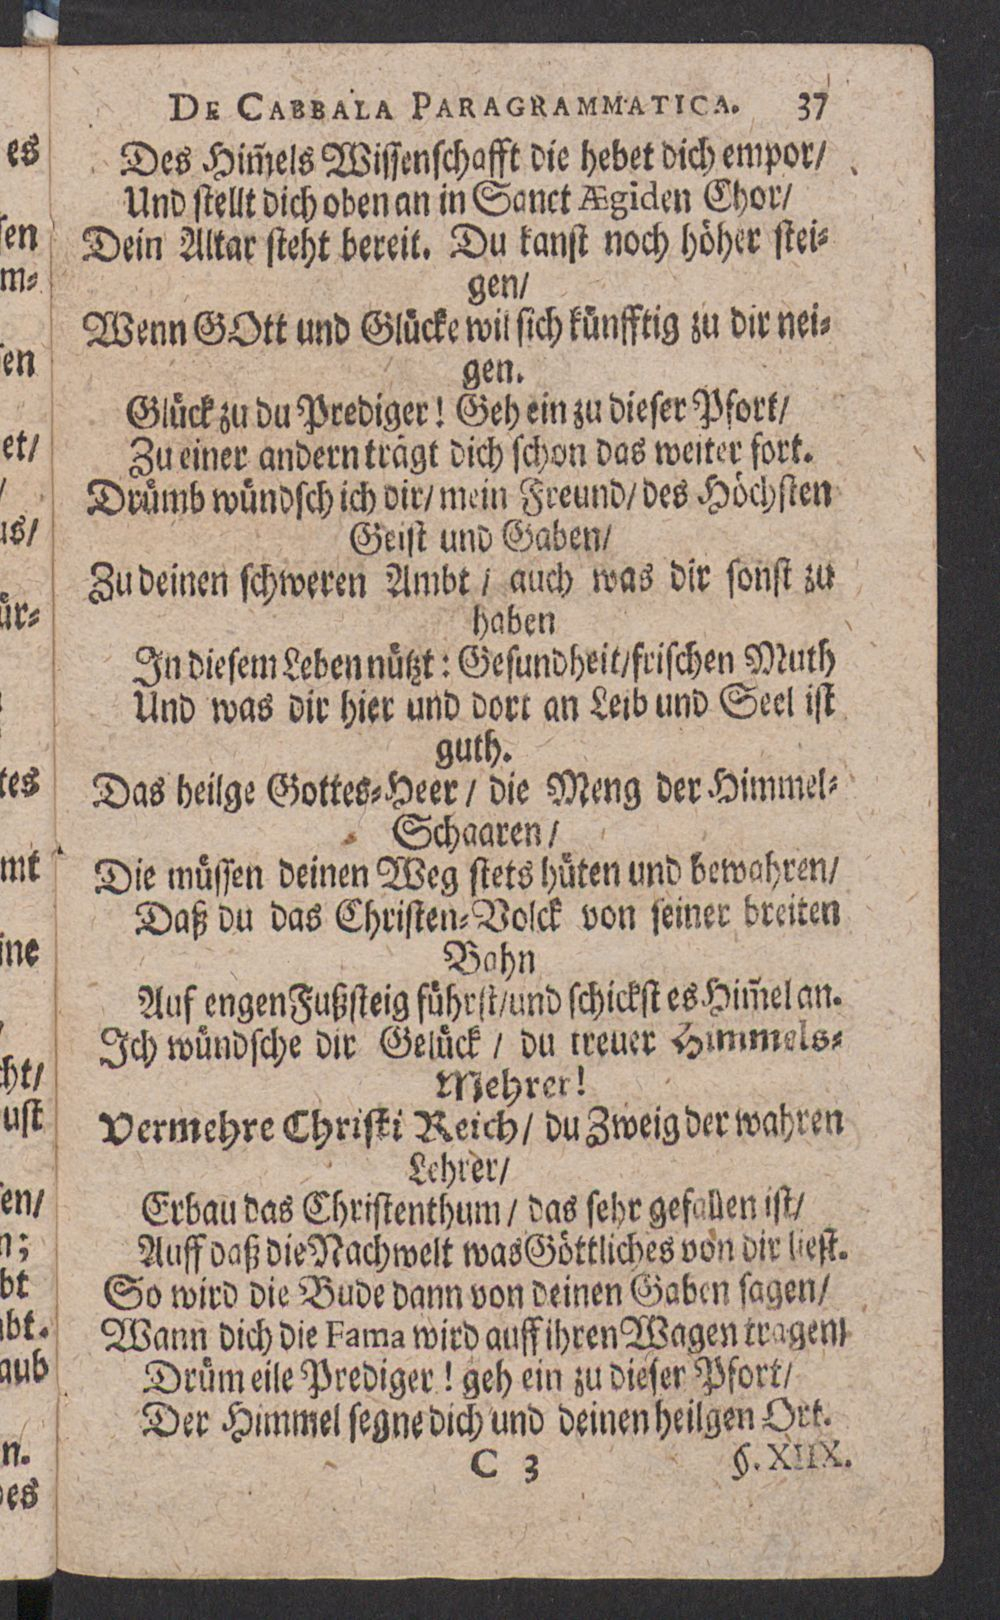 DE CABBALA PARAGRAMMATICA. 37
Des Him̃els Wissenschafft die hebet dich empor/
Und stellt dich oben an in Sanct Ægiden Chor/
Dein Altar steht bereit. Du kanst noch höher stei-
gen/
Wenn GOtt und Glücke wil sich künfftig zu dir nei-
gen.
Glück zu du Prediger! Geh ein zu dieser Pfort/
Zu einer andern trägt dich schon das weiter fort.
Drümb wündsch ich dir/ mein Freund/ des Höchsten
Geist und Gaben/
Zu deinen schweren Ambt / auch was dir sonst zu
haben
In diesem Leben nützt: Gesundheit/ frischen Muth
Und was dir hier und dort an Leib und Seel ist
guth.
Das heilge Gottes-Heer / die Meng der Himmel-
Schaaren/
Die müssen deinen Weg stets hüten und bewahren/
Daß du das Christen-Volck von seiner breiten
Bahn
Auf engen Fußsteig führst/und schickst es Him̃el an.
Ich wündsche dir Gelück / du treuer Himmels-
Mehrer!
Vermehre Christi Reich/ du Zweig der wahren
Lehrer/
Erbau das Christenthum / das sehr gefallen ist/
Auff daß die Nachwelt was Göttliches von dir liest.
So wird die Bude dann von deinen Gaben sagen/
Wann dich die Fama wird auff ihren Wagen tragen/
Drüm eile Prediger! geh ein zu dieser Pfort/
Der Himmel segne dich und deinen heilgen Ort.
C 3 §. XIIX.
es
sen
m-
sen
et/
us/
ür-
tes
mt
ine
cht/
ust
sen/
n;
bt
abt.
aub
n.
des